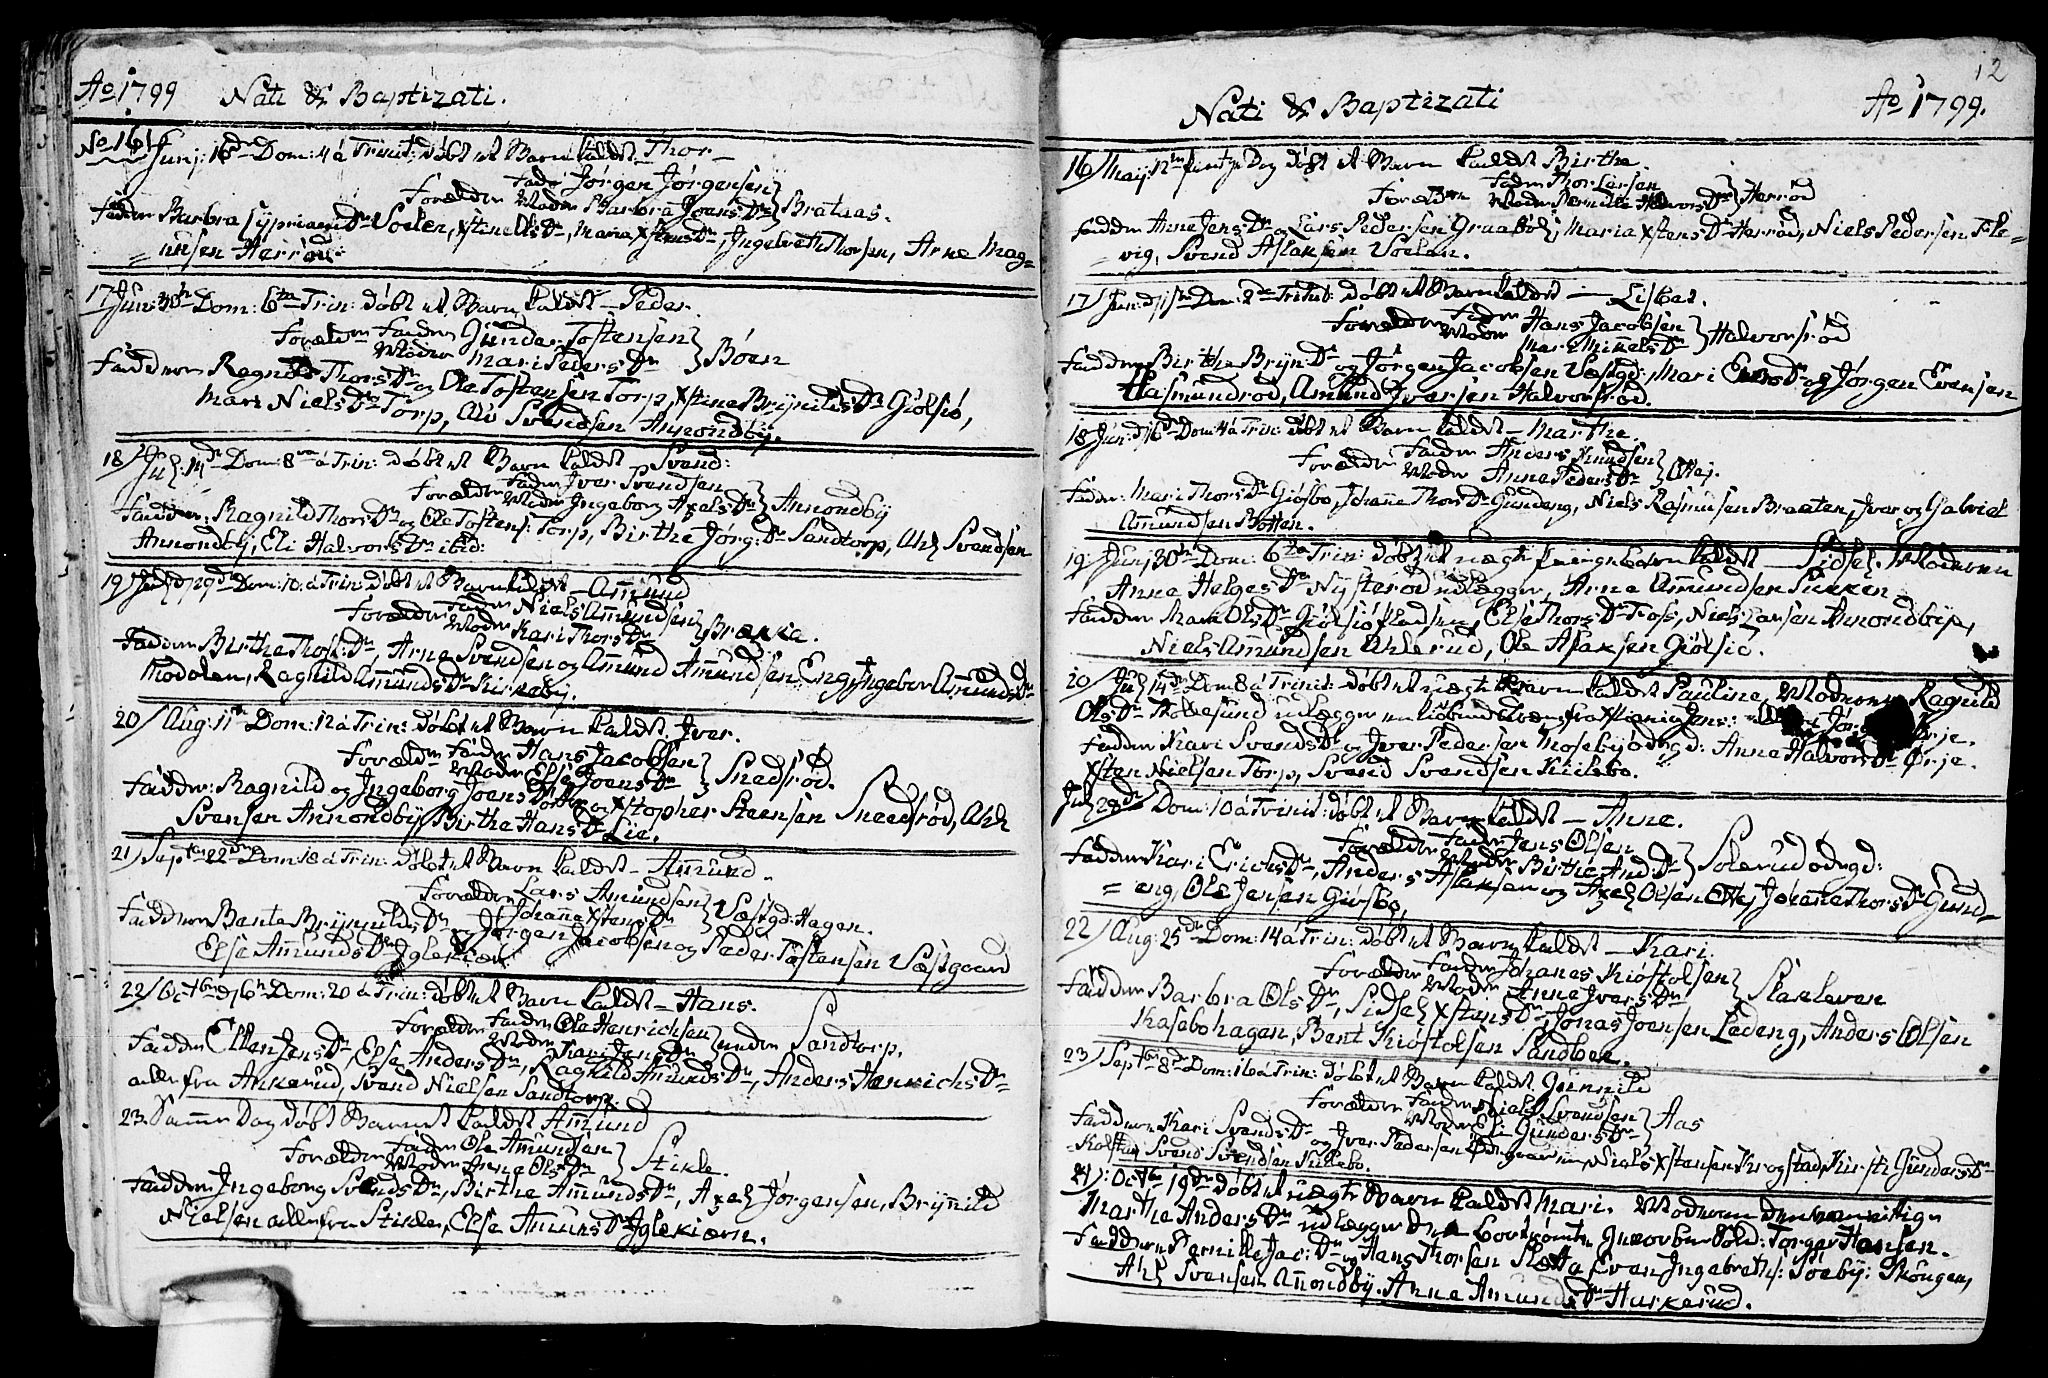 Ao 1799 Nati & Baptizati.
No 16/ Junj: 16de Dom: 4 á Trinit: døbt et Barn kaldt Thor
Forældre Fader Jørgen Jørgensen
Moder Barbra Joens Dr } Brataas.
Fadder Barbra Sypriaens Dr Voelen, Maria Xstens Dr, Ingelbreth Thorsen, Arne Mag=
=nusen Herrød.
17/ Jun: 30te Dom: 6te Trin: døbt et Barn kaldt Peder.
Forældre Faderen Gunder Tostensen
Moderen Mari Peders Dr } Böen
Faddere Thors Dr og Ole Tostensen Torp, Xstine Brynilds Dr Giölsiö,
Mari Niels Dr Torp, Svendsen Annondby.
18/ Jul: 14de Dom: 8 á Trin: døbt et Barn kaldt Svend:
Forældre Fader Iver Svendsen
Moder Ingeborg Axels Dr } Annondby
Faddere: Ragnild Thors Dr og Ole Tostens: Torp, Birthe Jörg: Dr Sandtorp, Svendsen
Annondby, Eli Halvors Dr ibid:
19/ Dom: 10 á Trin: døbt et Barn kaldt Amund
Forældre Fader Niels Amundsen
Moder Kari Thors Dr } Brækka.
Faddere Birthe Dr, Arne Svendsen og Amund Amundsen Eng, Ingebor Amunds Dr
Modolen, Ragnild Amunds Dr Kirkeby.
20/ Aug: 11te Dom: 12 á Trin: døbt et Barn kaldt Iver.
Forældre Fader Hans Jacobsen
Moder Else Joens Dr } Snedsrød.
Fadder: Ragnild og Ingeborg Joens Døttre og Xstopher Steensen Sneedsrød,
Svensen Annondby, Birthe Hans Dr Lie.
21/ Septbr 22de Dom: 18 á Trin: døbt et Barn kaldt Amund.
Forældre Lars Amundsen
Johanna Xstens Dr } Væstgd: Hagen.
Fadderne Bente Brynnilds Dr og Jørgen Jacobsen og Peder Tostensen Væstgaard
Else Amunds Dr Iglekiærn
22/ Octbr d/6te Dom: 20 á Trin: døbt et Barn kaldt Hans.
Forældre Fader Ole Henrichsen
Moder Kari Jens Dr } under Sandtorp.
Fadder Ellen Jens Dr, Else Anders Dr, Ragnild Amunds Dr, Anders Henrichs Dr
alle fra Ankerud, Svend Nielsen Sandtorp.
23. Samme Dag døbt Barnet kaldt Amund
Forældre Fader Ole Amundsen
Moder Anne Ols Dr } Stikle.
Fadder Ingeborg Svends Dr, Birthe Amunds Dr, Axel Jørgensen, Brynnild
Nielsen alle fra Stikle, Else Amuns Dr Iglekiærn.
12
Nati & Baptizati Ao 1799.
16/ Maij 12te Dag døbt et Barn kaldt Birthe.
Forældre Fader Thor Larsen
Moder Pernille Halvors Dr } Herrød
Fadder Anne Jens Dr og Lars Pedersen Graaböl, Maria Xstens Dr Herrød, Niels Pedersen Fle=
=vig, Svend Aslaksen Voelen.
17/ Jun: Dom: Trinit: døbt et Barn kaldt Lisbet.
Forældre Fader Hans Jacobsen
Moder Mari Mikkels Dr } Halvorsrød
Fadder Birthe Bryn Dr og Jørgen Jacobsen Væstgd:, Mari Evens Dr og Jørgen Evensen
Hasmundrød, Amund Iversen Halvorsrød.
18/ Jun: d/16de Dom: 4 á Trin: døbt et Barn kaldt Marthe.
Forældre Fader Anders Knudsen
Moder Anne Peders Dr }
Fadder: Mari Thors Dr Giösbo, Johanne Thors Dr Gundeng, Niels Rasmusen Braaten, Iver og Gabriel
Amundsen Botten.
19/ Junj 30te Dom: 6te Trin: døbt et uægte kaldt Sidsel. Moderen
Anne Helges Dr Nysterød udlægger, Arne Amundsen
Fadder Mari Ols Dr Giölsiö, Else Thors Dr Fos, Niels Larsen Annondbye,
Niels Amundsen Ahlerud, Ole Aslaksen Giölsiö.
20/ Jul: 14de Dom: 8 á Trinit: døbt et uægte Barn kaldt Pauline, Moderen Ragnild
Ols Dr udlægger fra Xstiania Jens Ørje.
Fadder Kari Svends Dr og Iver Pedersen Mosebyødegd: Anne Halvors Dr Ørje.
Xsten Nielsen Torp, Svend Svendsen Kielebo.
Jul 28de Dom: 10 á Trinit: døbt et Barn kaldt Anne.
Forældre Fader Jens Olsen
Moder Birthe And: Dr } Solerud ødegd:
Fadder Kari Erichs Dr, Anders Aslaksen og Axel Olsen Johane Thors Dr Gund=
=eng, Ole Jensen Giösbo,
22/ Aug: 25de Dom: 14 á Trin: døbt et Barn kaldt Kari
Forældre Fader Johanes Kiöstolsen
Moder Anne Ivers Dr }
Fadder Barbra Ols Dr, Sidsel Xstens Dr, Jonas Joensen Ledeng, Anders Olsen
Kasebohagen, Bent Kiöstolsen Sandboe.
23/ Septbr 8de Dom: 16 á Trin: døbt et Barn kaldt Gunnild
Forældre Fader Niels Svendsen
Moder Eli Gunders Dr } Aas
Fadderne Kari Svends Dr og Iver Pedersen Niels Xstensen Krogstad, Kirsti Gunders Dr
Svend Svendsen Killebo.
Octbr 19de døbt et uægte Barn kaldt Mari. Moderen
Marthe Anders Dr udlægger Torger Hansen.
Fadderne Pernille Jac: Dr og Hans Thorsen Slette Even Ingebreths: Soeby: Skougen,
Svensen Anondby. Anne Amunds Dr Harkerud.